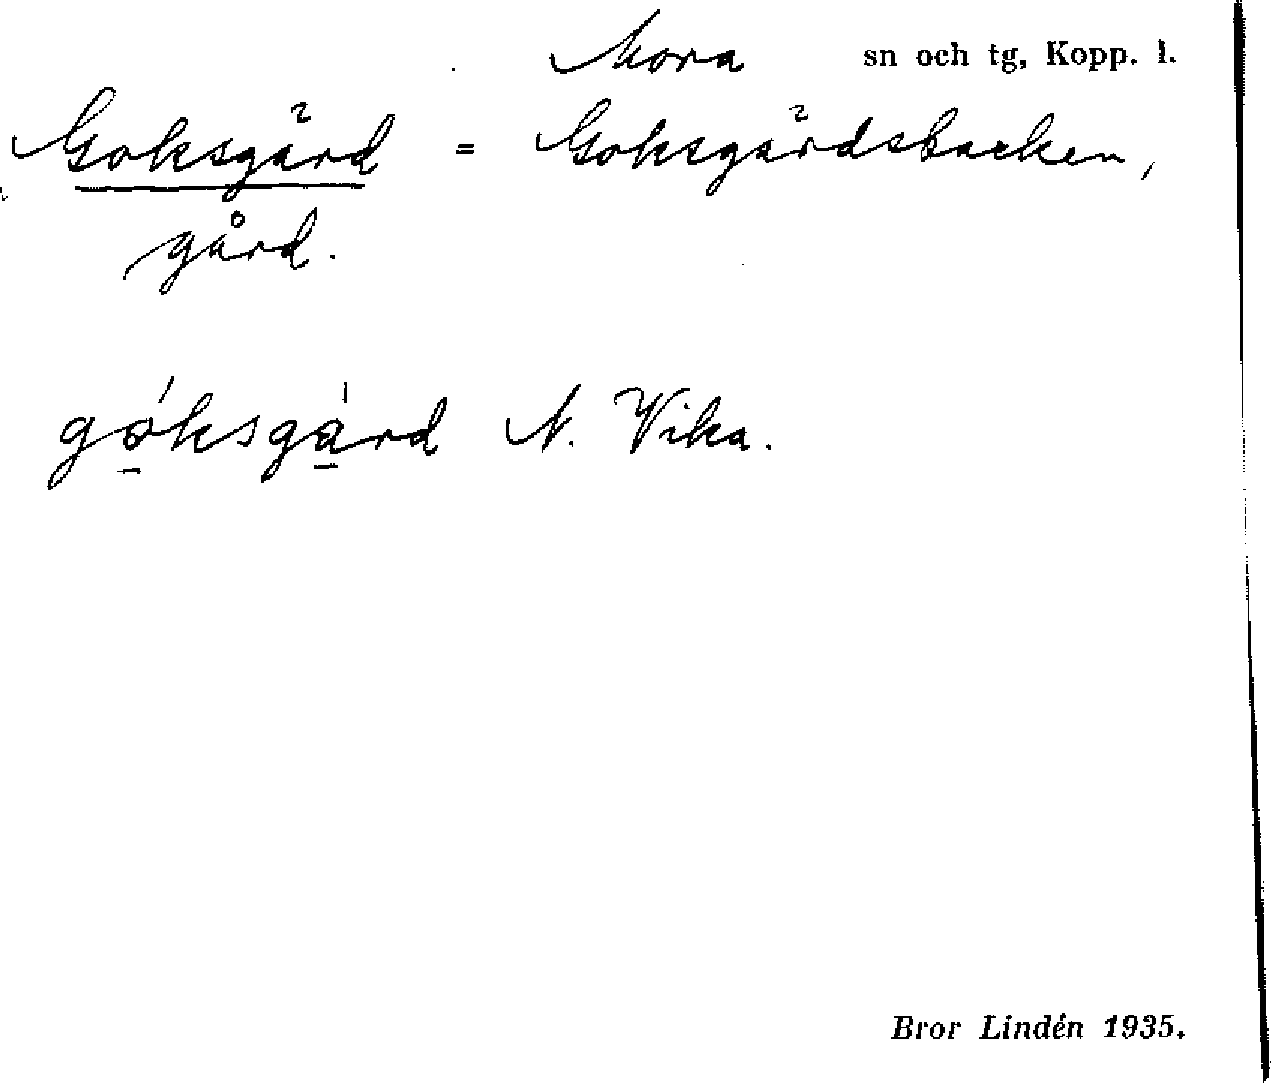 Mora sn och tg, Kopp. l.
Goksgård = Goksgårdsbacken,
gård.
góksgård N. Vika.
Bror Lindén 1935.